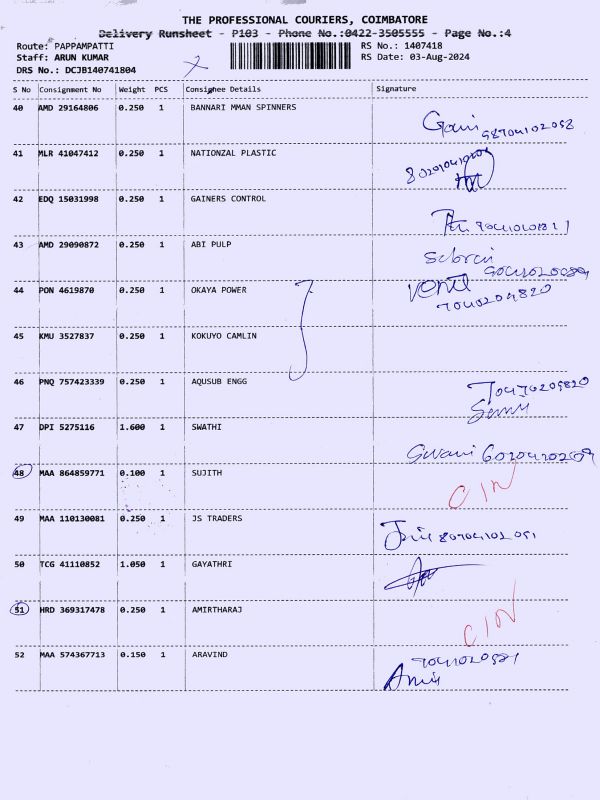 THE PROFESSIONAL COURIERS, COIMBATORE
Delivery Runsheet - P103 - Phone No.:0422-3505555 - Page No.:4
Route: PAPPAMPATTI RS No.: 1407418
Staff: ARUN KUMAR RS Date: 03-Aug-2024
DRS No.: DCJB140741804
S No Consignment No Weight PCS Consignee Details Signature
40 AMD 29164806 0.250 1 BANNARI MMAN SPINNERS
41 MLR 41047412 0.250 1 NATIONZAL PLASTIC
42 EDQ 15031998 0.250 1 GAINERS CONTROL
43 AMD 29090872 0.250 1 ABI PULP
44 PON 4619870 0.250 1 OKAYA POWER
7040204820
45 KMU 3527837 0.250 1 KOKUYO CAMLIN
46 PNQ 757423339 0.250 1 AQUSUB ENGG
47 DPI 5275116 1.600 1 SWATHI
48 MAA 864859771 0.100 1 SUJITH C/N
49 MAA 110130081 0.250 1 JS TRADERS
50 TCG 41110852 1.050 1 GAYATHRI
51 HRD 369317478 0.250 1 AMIRTHARAJ C/N
52 MAA 574367713 0.150 1 ARAVIND